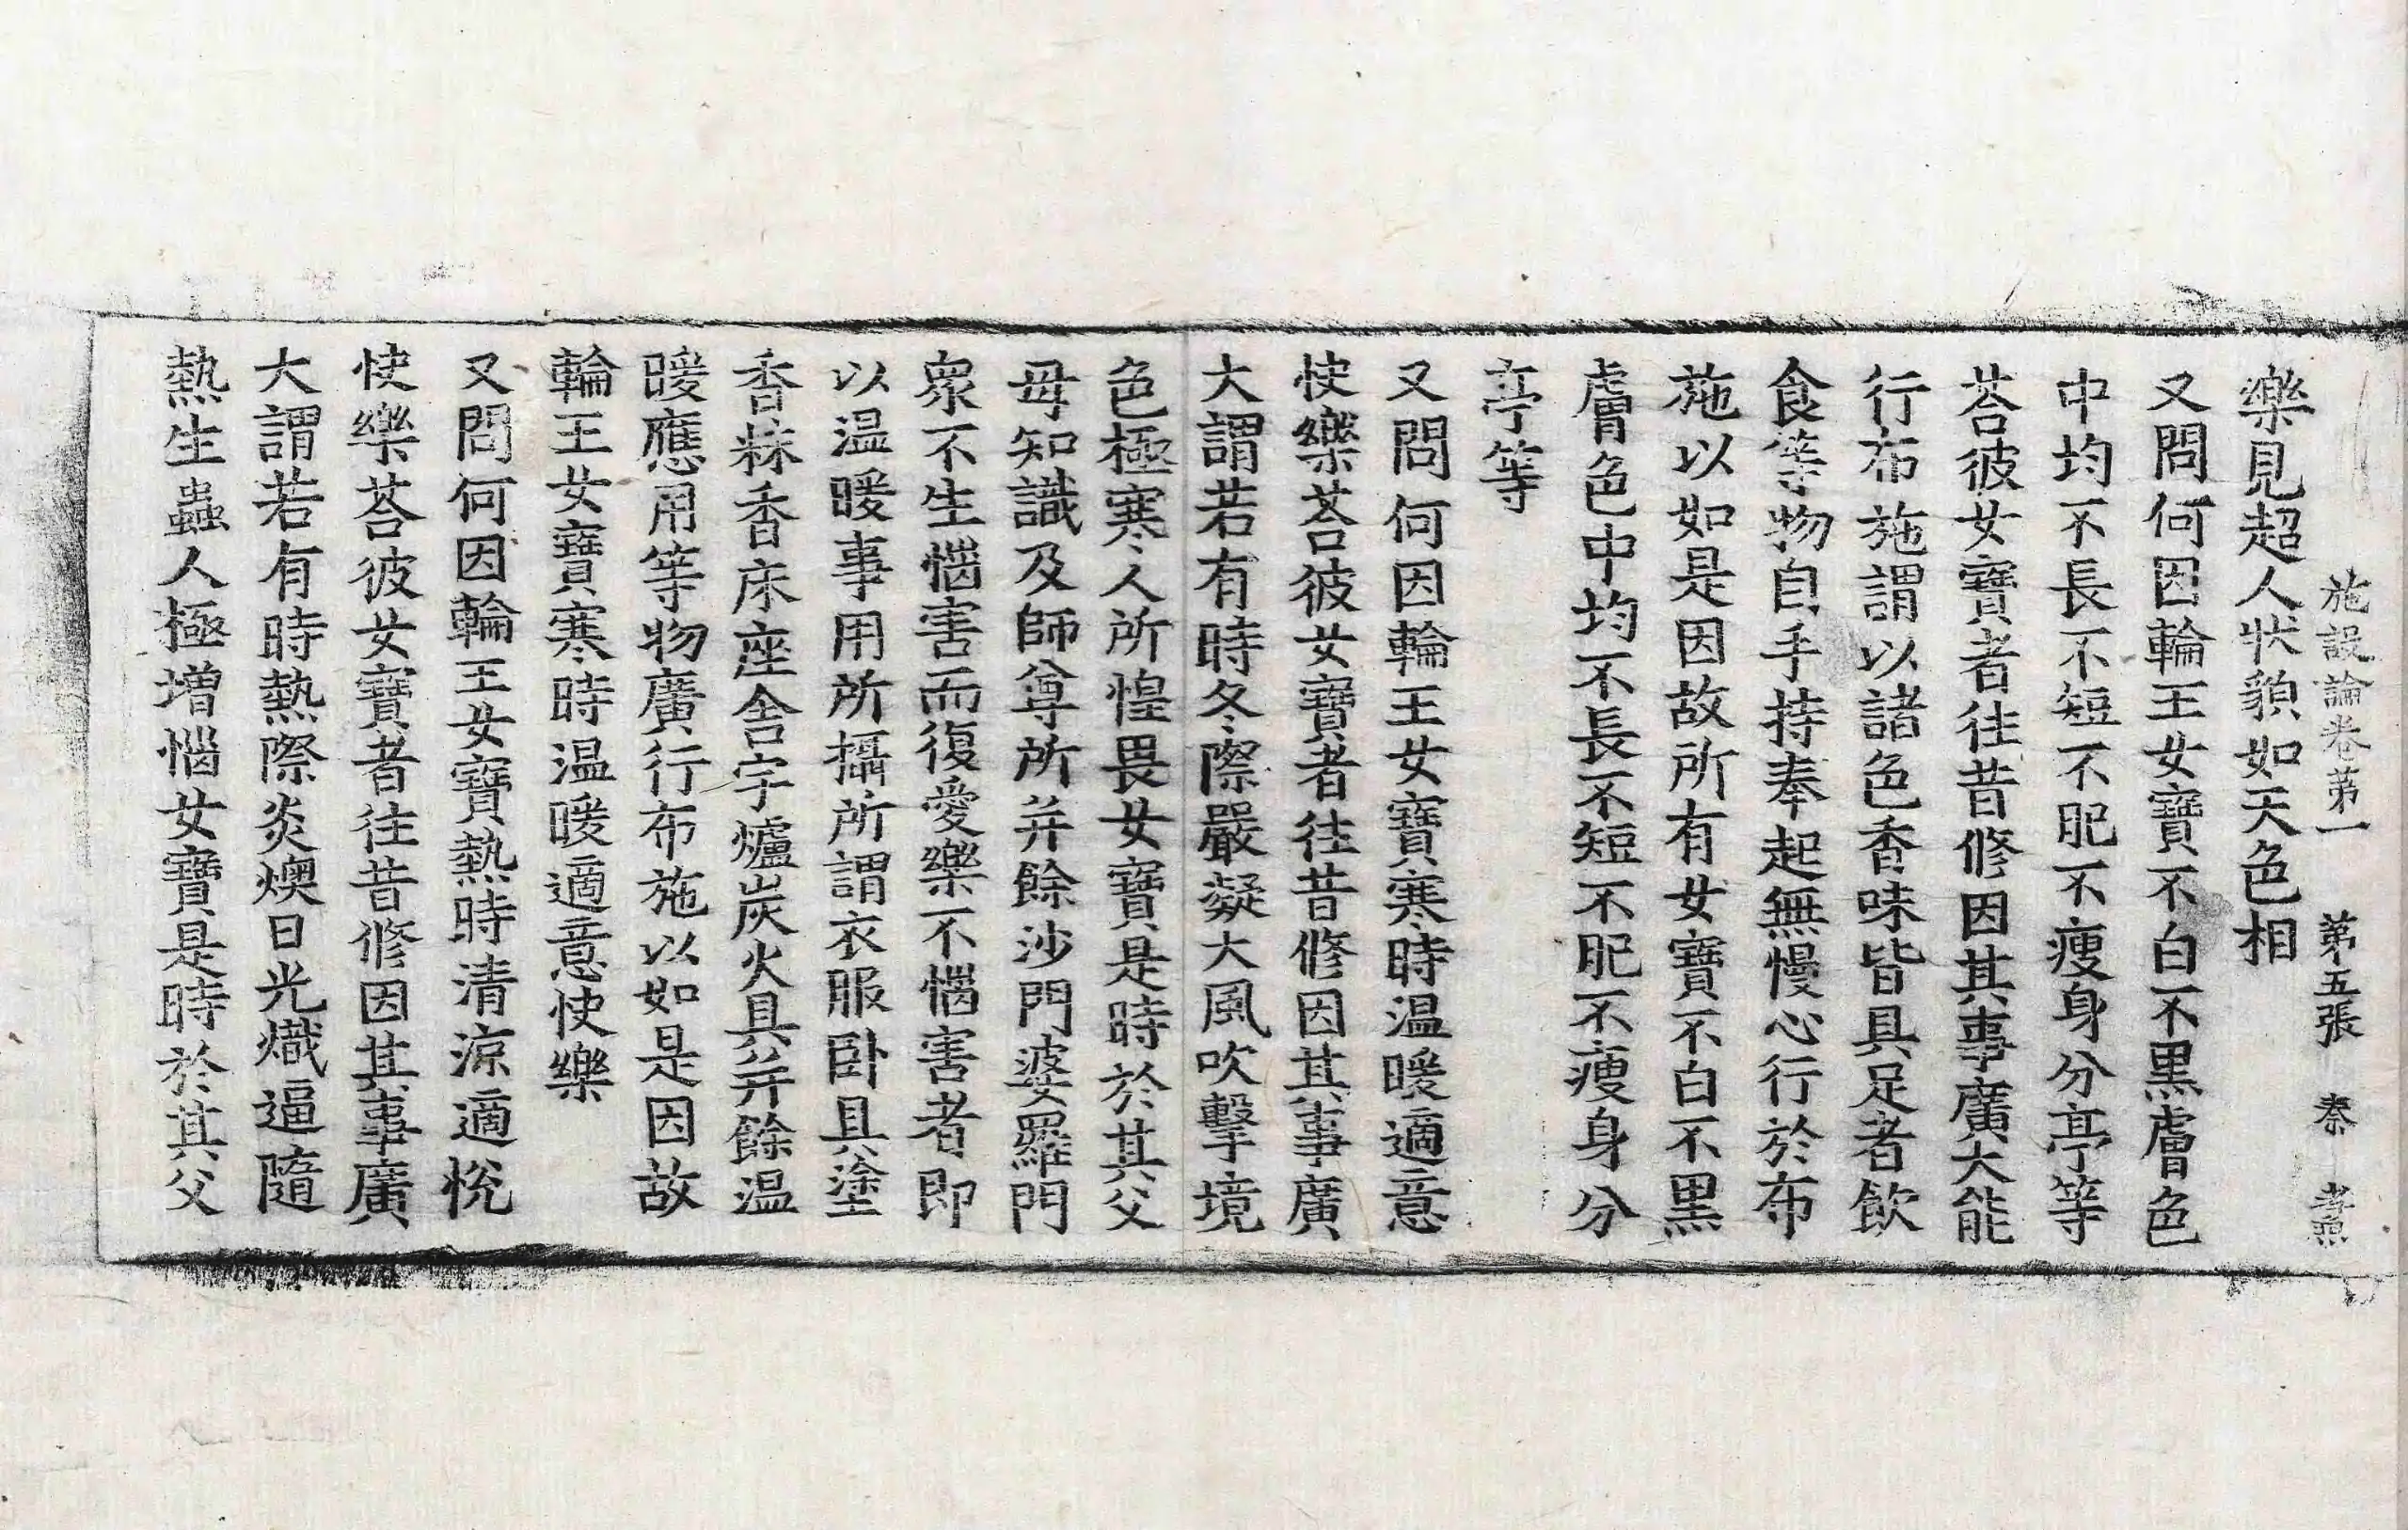 施設論卷第一 第五張 秦
樂見超人狀貌如天色相
又問何因輪王女寶不白不黑膚色
中均不長不短不肥不瘦身分亭等
荅彼女寶者往昔修因其事廣大能
行布施謂以諸色香味皆具足者飲
食等物自手持奉起無慢心行於布
施以如是因故所有女寶不白不黑
膚色中均不長不短不肥不瘦身分
亭等
又問何因輪王女寶寒時温暖適意
快樂荅彼女寶者往昔修因其事廣
大謂若有時冬際嚴凝大風吹擊境
色極寒人所惶畏女寶是時於其父
母知識及師尊所并餘沙門婆羅門
衆不生惱害而復愛樂不惱害者即
以温暖事用所攝所謂衣服卧具塗
香粖香床座舍宇爐炭火具并餘温
暖應用等物廣行布施以如是因故
輪王女寶寒時温暖適意快樂
又問何因輪王女寶熱時清涼適悅
快樂荅彼女寶者往昔修因其事廣
大謂若有時熱際炎燠日光熾逼隨
熱生蟲人極增惱女寶是時於其父